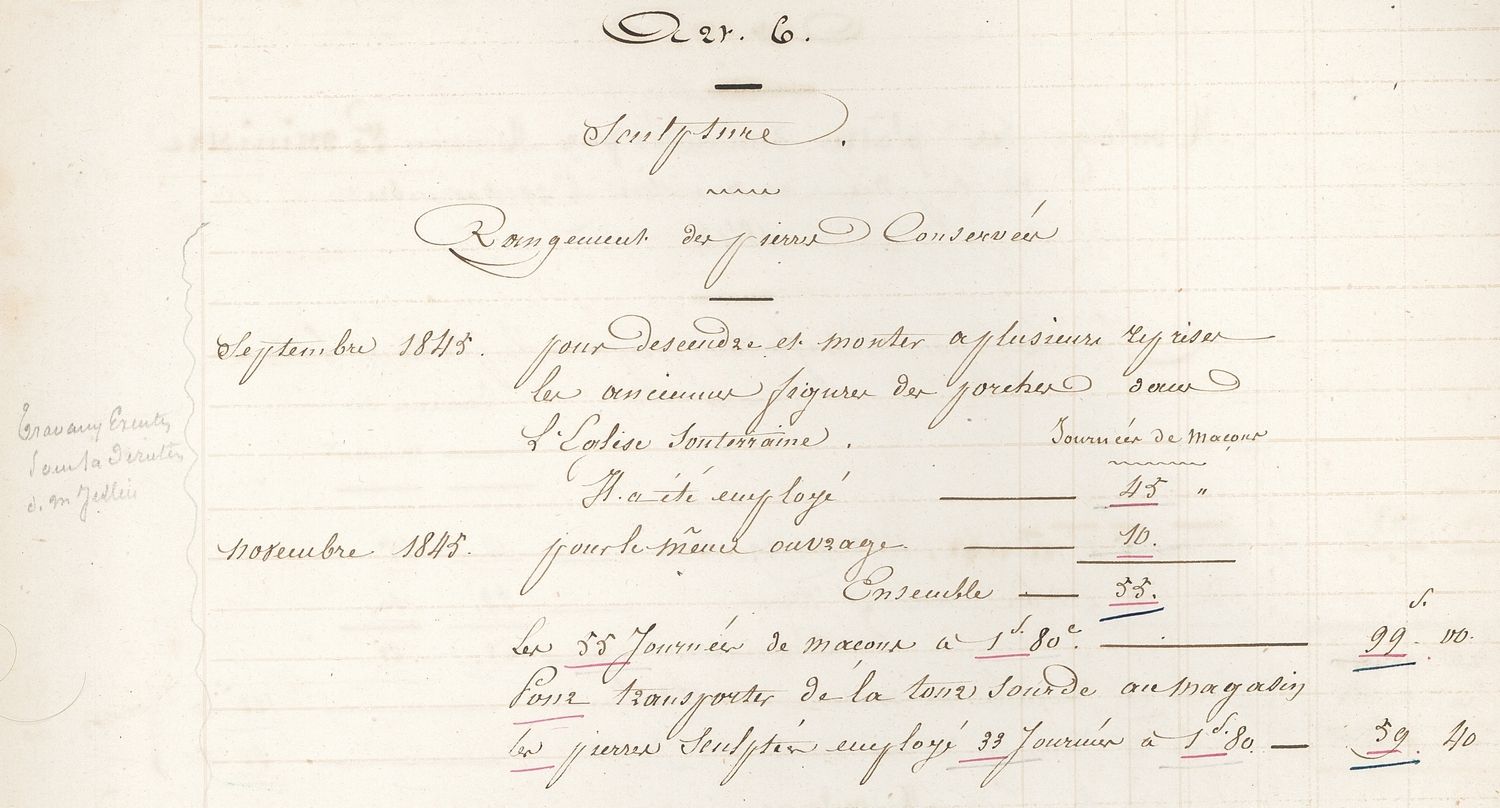 Art. 6.
Sculpture.
Rangement des pierres Conservées
Septembre 1845. pour descendre et monter a plusieurs reprises
les anciennes figures des porches dans
L'Eglise Souterraine. Journées de maçons
Il a été employé 45 "
novembre 1845. pour le même ouvrage 10.
Ensemble 55.
f.
Les 55 Journées de maçons à 1f. 80c. 99. 00.
Pour transporter de la tour sourde au magasin
les pierres Sculptées employé 33 Journées à 1f. 80 59. 40
Travaux Exécutés
Sous la
d. m